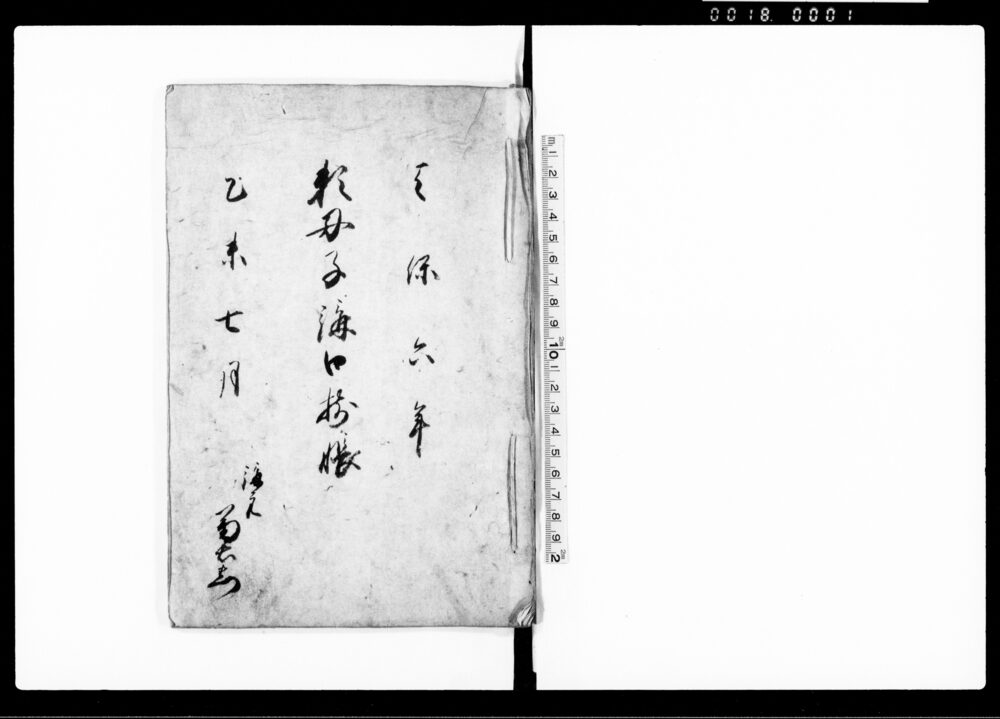 0018. 0001
天保六年
頼母子講口掛帳
乙未七月
講元
m 1 2 3 4 5 6 7 8 9 10 1 2 3 4 5 6 7 8 9 2